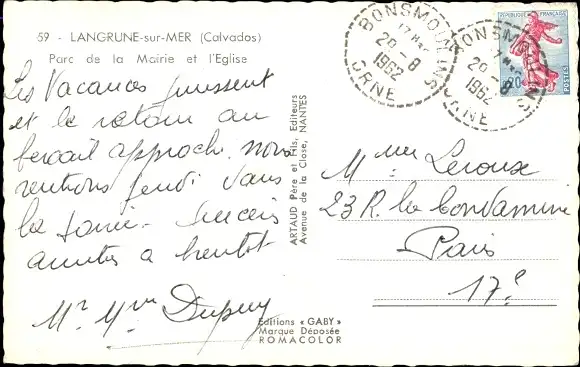 59 - LANGRUNE-sur-MER (Calvados)
Parc de la Mairie et l'Eglise
Les Vacances finissent
et le retour au
approche. nous
rentrons jeudi dans
la
amitiés a bientot
Mr. Mme Dupuy
ARTAUD Père et Fils, Editeurs
Avenue de la Close, NANTES
Editions « GABY »
Marque Déposée
ROMACOLOR
BONSMOULINS
17H
20 - 8
1962
ORNE
BONSMOULINS
17H
20 - 8
1962
ORNE
REPUBLIQUE FRANÇAISE
0,20
POSTES
Mme Leroux
23 R. la Condamine
Paris
17e